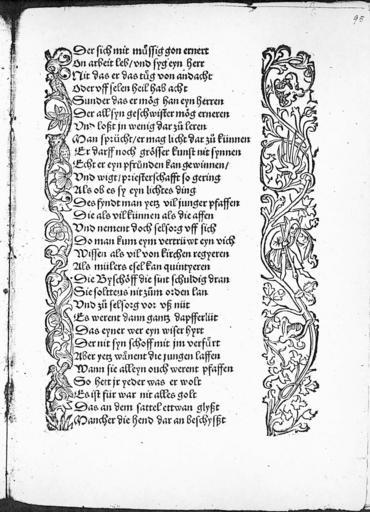 95
Der sich mit müssig gon ernert
On arbeit leb/vnd syg eyn herr
Nit das er das tüg von andacht
Oder vff selen heil hab acht
Sunder das er mög han eyn herren
Der all syn geschwister mög erneren
Vnd loßt jn wenig dar zů leren
Man sprücht/er mag licht dar zů künnen
Er darff noch grösser kunst nit synnen
Echt er eyn pfründen kan gewinnen/
Vnd wigt/priesterschafft so gering
Als ob es sy eyn lichtes ding
Des fyndt man yetz vil junger pfaffen
Die als vil künnen als die affen
Vnd nement doch selsorg vff sich
Do man kum eym vertrüwt eyn vich
Wissen als vil von kirchen regyeren
Als müllers esel kan quintyeren
Die Byschöff die sint schuldig dran
Sie soltens nit zům orden lan
Vnd zů selsorg vor vß nüt
Es werent dann gantz dapffer lüt
Das eyner wer eyn wiser hyrt
Der nit syn schoff mit jm verfürt
Aber yetz wänent die jungen laffen
Wann sie alleyn ouch werent pfaffen
So hett jr yeder was er wolt
Es ist für war nit alles golt
Das an dem sattel ettwan glyßt
Mancher die hend dar an beschyßt